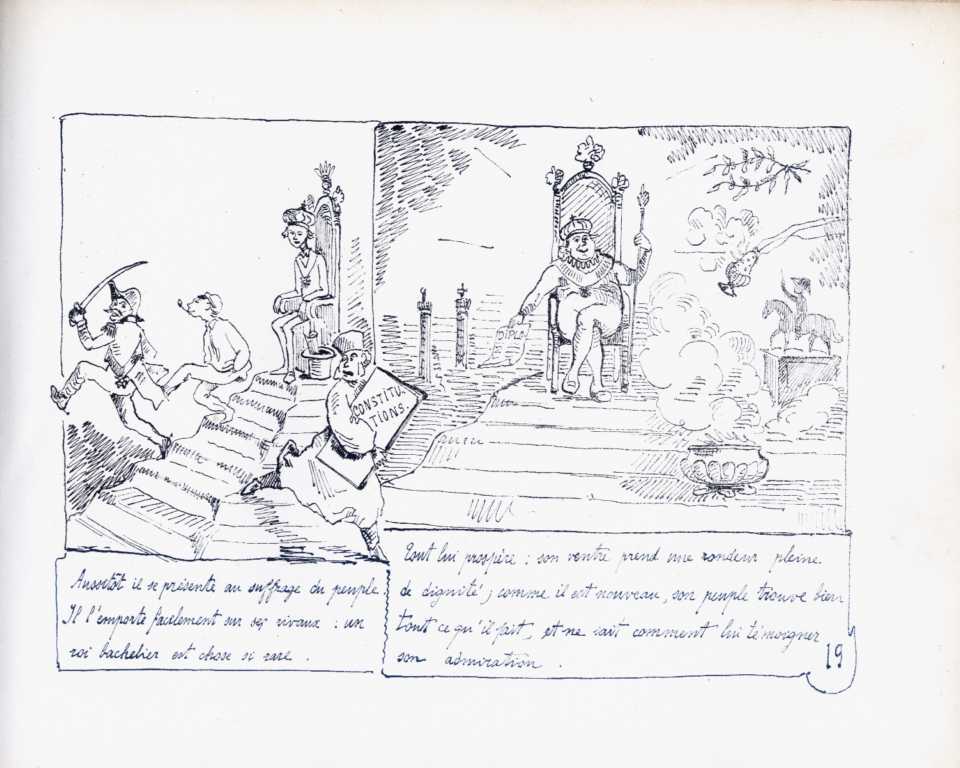 CONSTITU-
TIONS.
DIPL
Aussitôt il se présente au suffrage du peuple.
Il l'emporte facilement sur ses rivaux : un
roi bachelier est chose si rare.
Tout lui prospère : son ventre prend une rondeur pleine
de dignité ; comme il est nouveau, son peuple trouve bien
tout ce qu'il fait, et ne sait comment lui témoigner
son admiration.
19